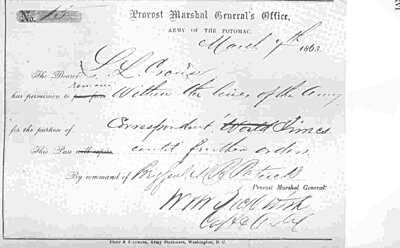 No.
Provost Marshal General's Office,
ARMY OF THE POTOMAC,
March 7th 1863
The Bearer L. L. Crounse
has permission to pass from remain Within the lines of the Army
for the purpose of Correspondent World Times
This Pass will expire until further orders
By command of M R Patrick
Provost Marshal General
Capt &
PHILP & SOLOMONS, Army Stationers, Washington, D. C.